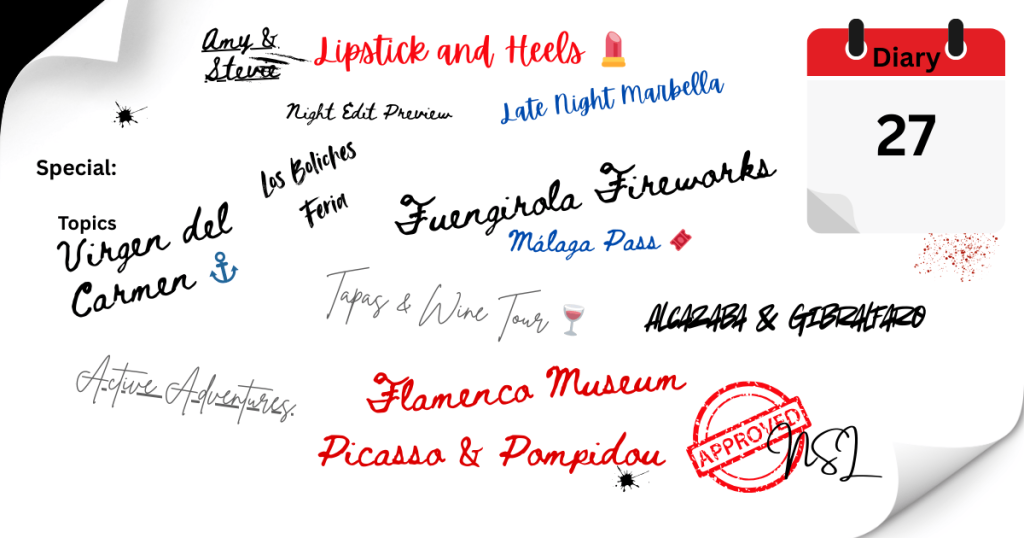 Amy &
Stevie
Lipstick and Heels
Diary
27
Night Edit Preview
Late Night Marbella
Special:
Los Boliches
Feria
Fuengirola Fireworks
Topics
Virgen del
Carmen
Málaga Pass
Tapas & Wine Tour
ALCAZABA & GIBRALFARO
Active Adventures.
Flamenco Museum
Picasso & Pompidou
APPROVED
NSL